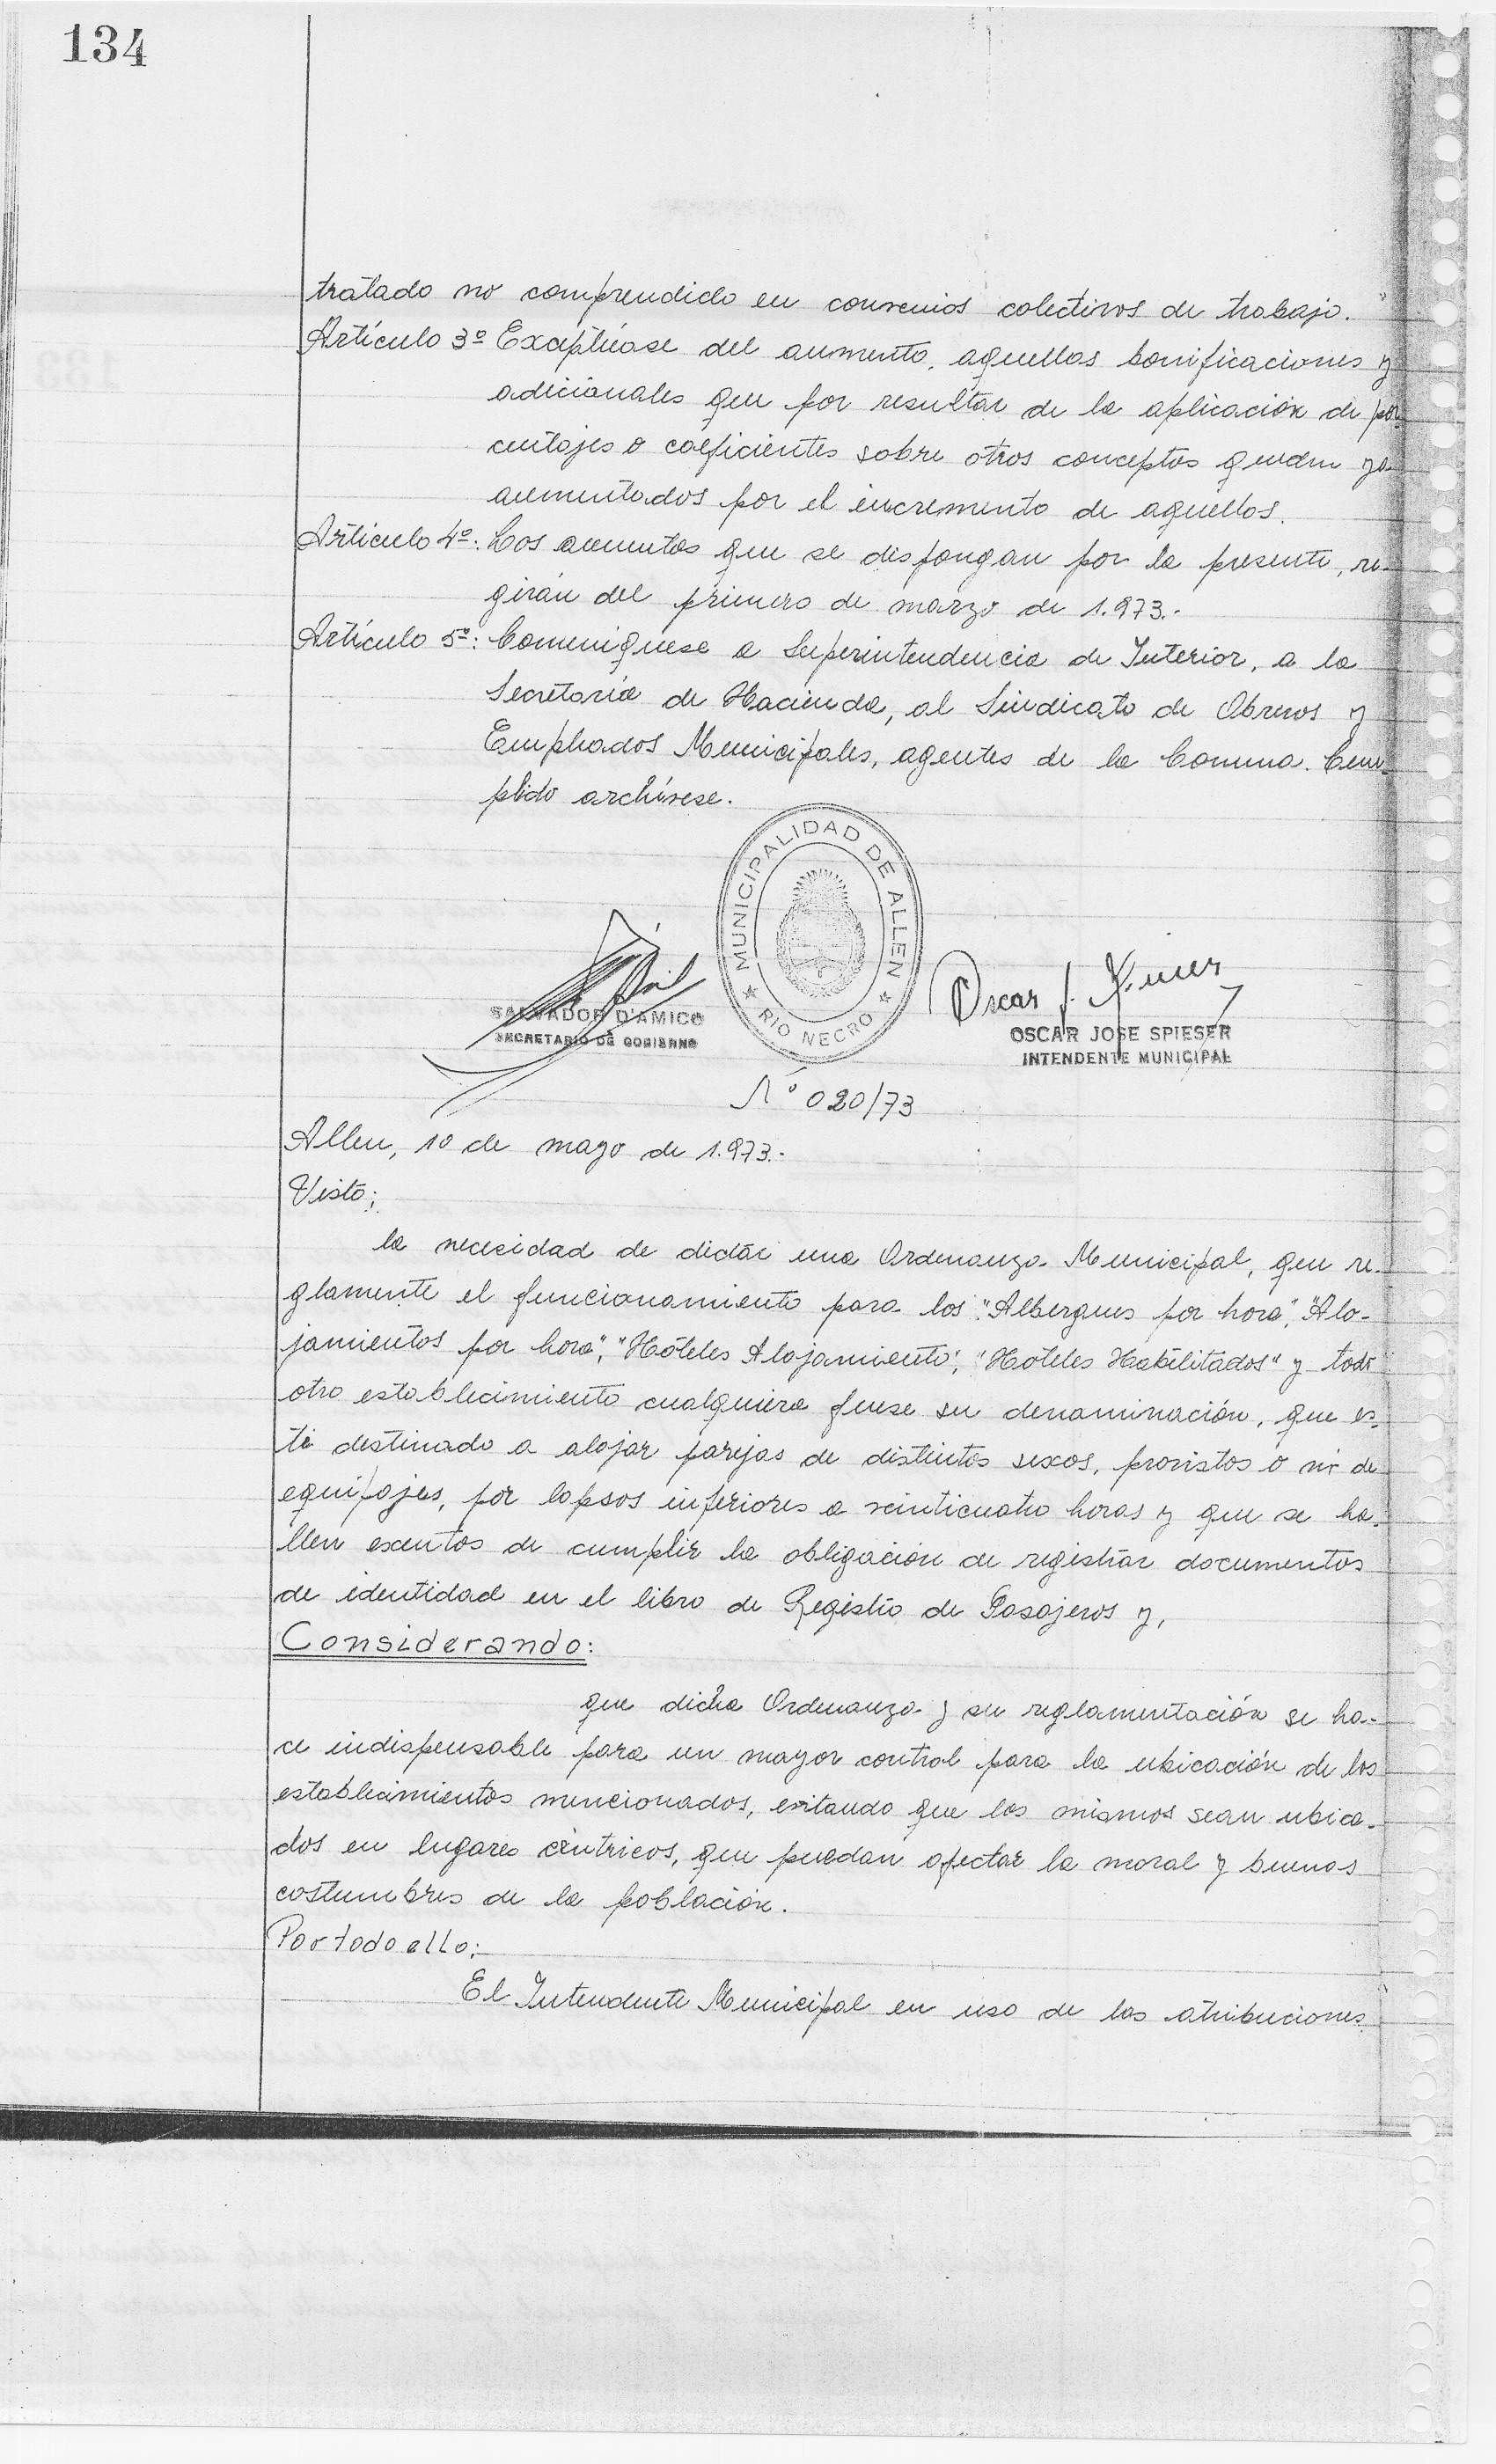 134
tratado no comprendido en convenios colectivos de trabajo.
Artículo 3º Exceptúase del aumento, aquellas bonificaciones y
adicionales que por resultar de la aplicación de por-
centajes o coeficientes sobre otros conceptos queden ya
aumentados por el incremento de aquellos.
Artículo 4º: Los aumentos que se dispongan por la presente, re-
girán del primero de marzo de 1.973.-
Artículo 5º: Comuníquese a Superintendencia de Interior, a la
Secretaría de Hacienda, al Sindicato de Obreros y
Empleados Municipales, agentes de la Comuna. Cum-
plido archívese.
MUNICIPALIDAD DE ALLEN
RIO NEGRO
SALVADOR D'AMICO
SECRETARIO DE GOBIERNO
Oscar J.
OSCAR JOSE SPIESER
INTENDENTE MUNICIPAL
Nº 020/73
Allen, 10 de mayo de 1.973.-
Visto;
la necesidad de dictar una Ordenanza Municipal, que re-
glamente el funcionamiento para los "Albergues por hora", "Alo-
jamientos por hora", "Hoteles Alojamiento", "Hoteles Habilitados" y todo
otro establecimiento cualquiera fuese su denominación, que es-
té destinado a alojar parejas de distintos sexos, provistos o no de
equipajes, por lapsos inferiores a veinticuatro horas y que se ha-
llen exentos de cumplir la obligación de registrar documentos
de identidad en el libro de Registro de Pasajeros y,
Considerando:
que dicha Ordenanza y su reglamentación se ha-
ce indispensable para un mayor control para la ubicación de los
establecimientos mencionados, evitando que los mismos sean ubica-
dos en lugares céntricos, que puedan afectar la moral y buenas
costumbres de la población.
Por todo ello:
El Intendente Municipal en uso de las atribuciones